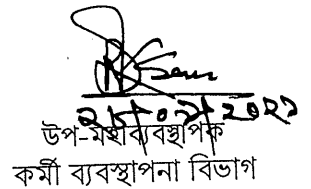 ২৮/০৯/২০২১
উপ-মহাব্যবস্থাপক
কর্মী ব্যবস্থাপনা বিভাগ